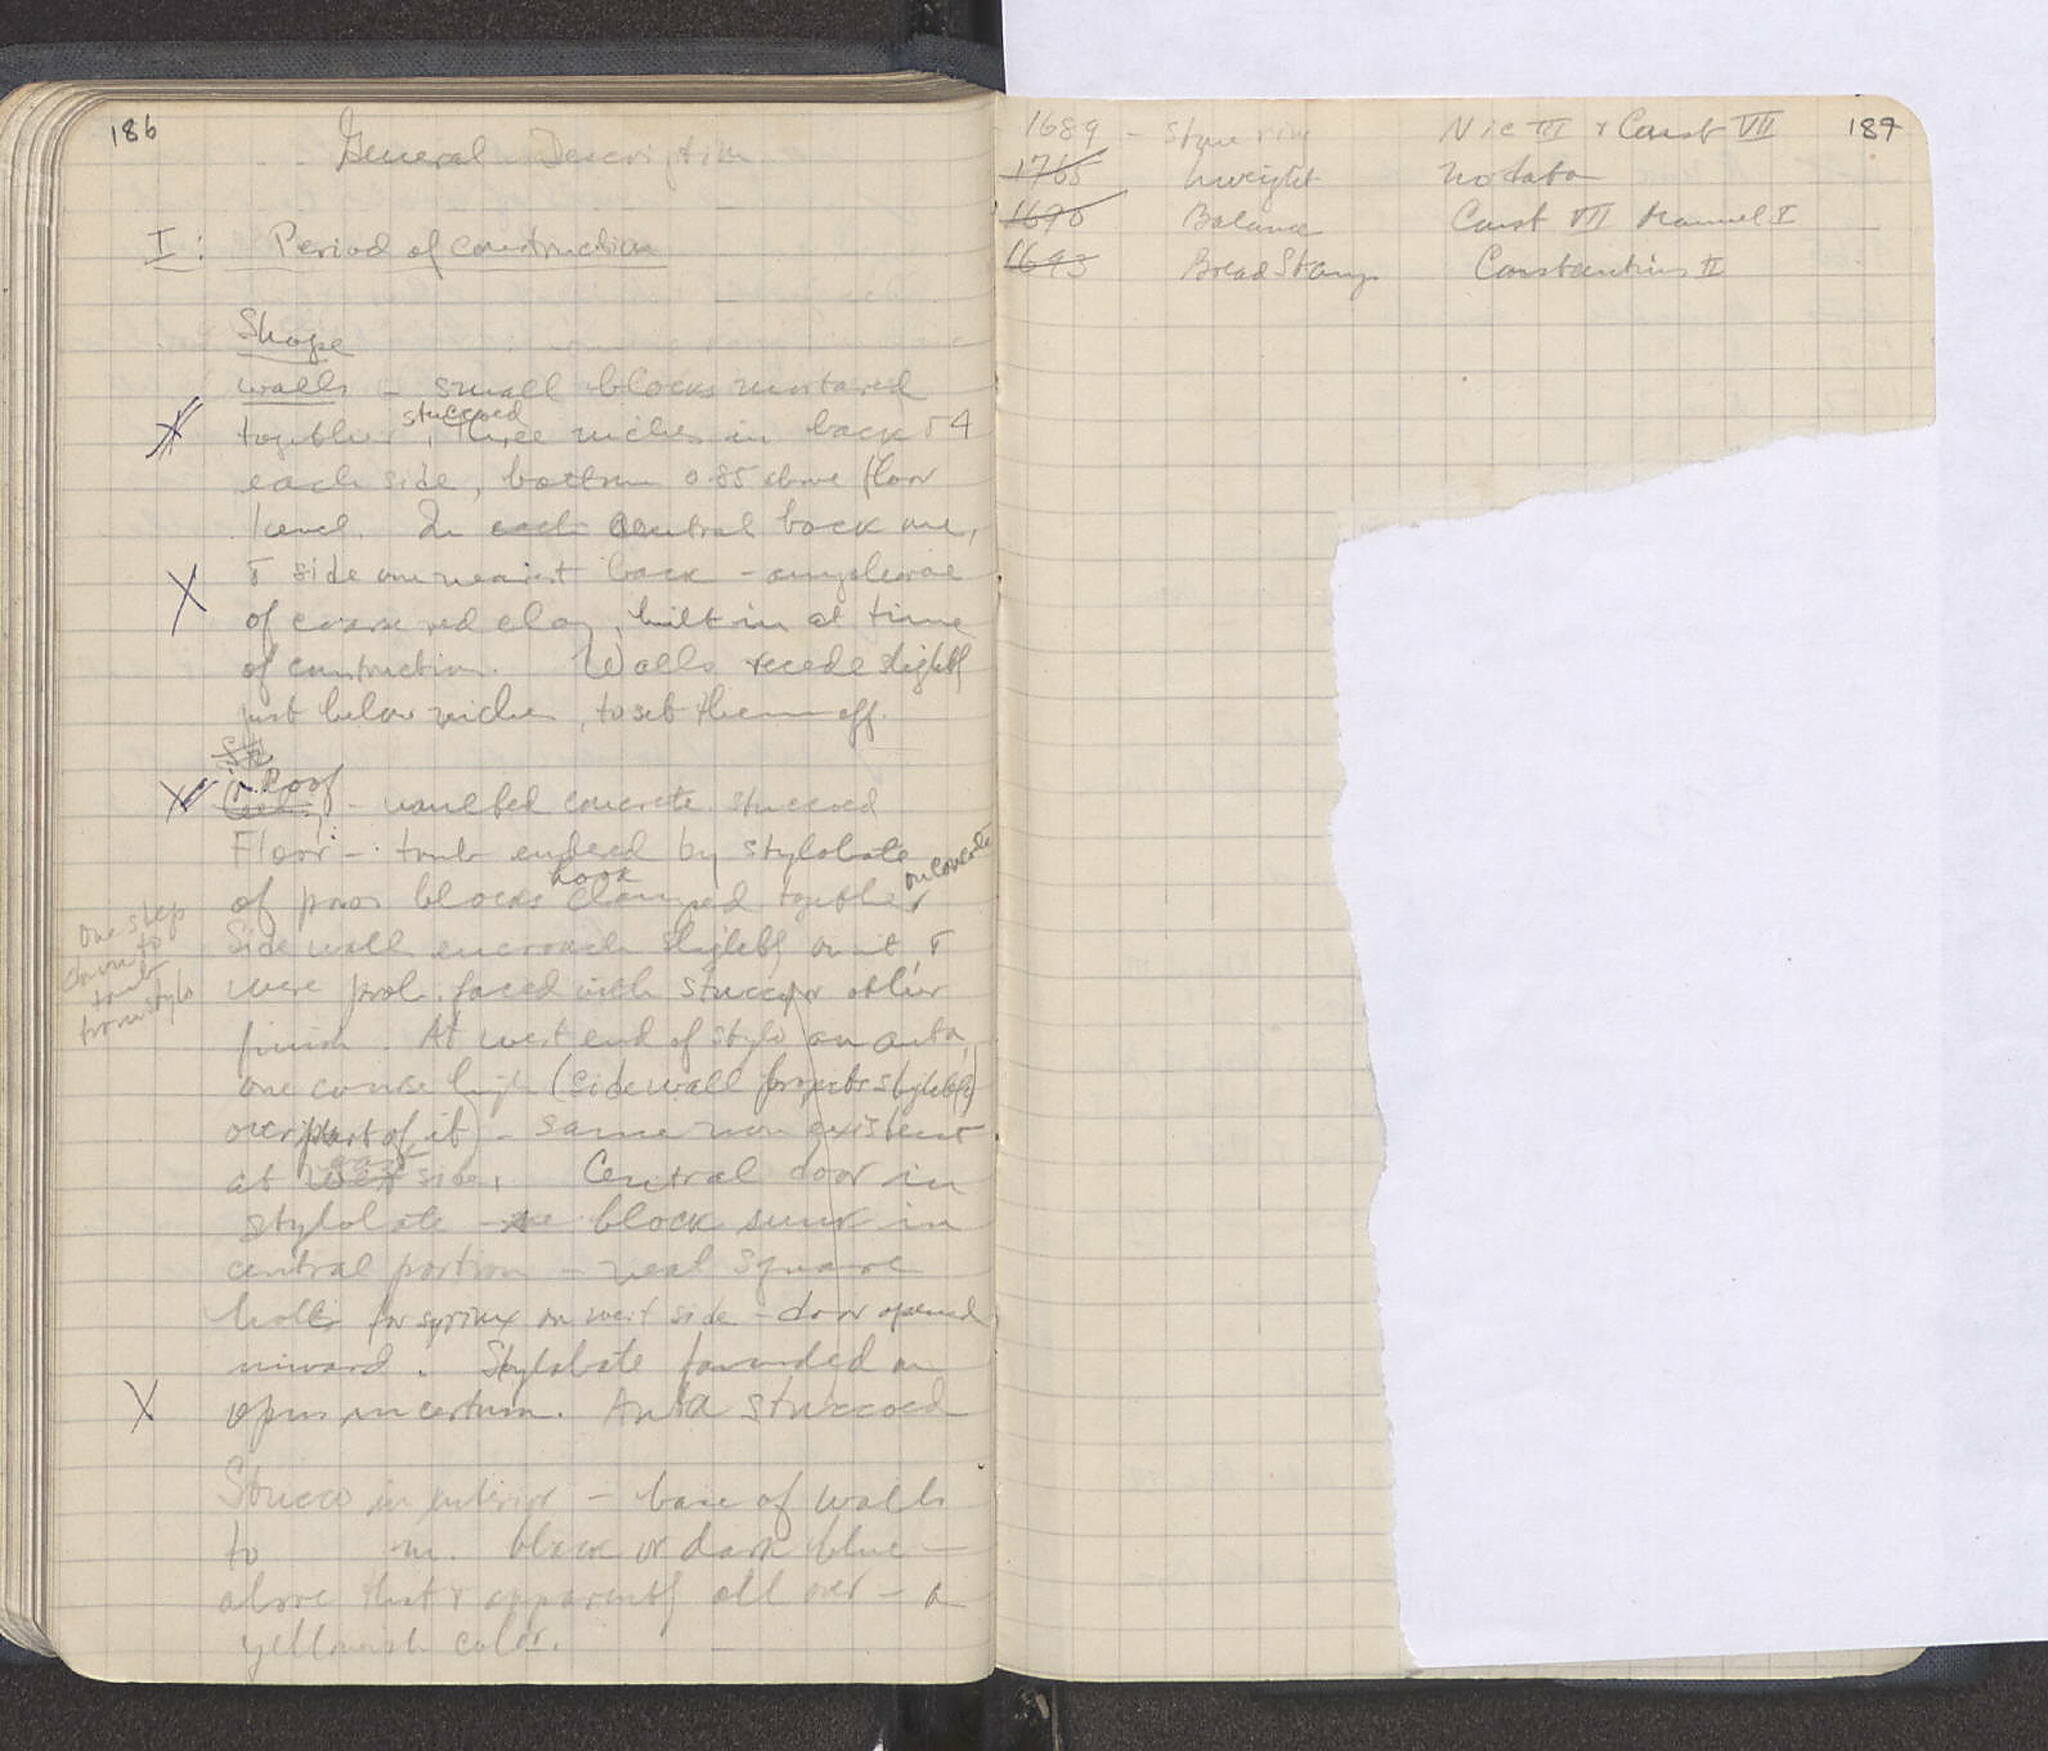 186
General Description
I: Period of construction
Shape
walls - small blocks mortared
together, stuccoed, three niches in back + 4
each side, bottom 0.85 above floor
level. In each central back one,
+ side one nearest back - amphorae
of coarse red clay, built in at time
of construction. Walls recede slightly
just below niches, to set them off.
Roof - vaulted concrete. stuccoed
Floor - tomb entered by stylobate
of poros blocks hook clamped together on concrete
Side walls encroach slightly on it, +
were prob. faced with stucco or other
finish. At west end of stylo an anta,
one course high (side wall projects slightly
over part of it) - same non existent
at west east side. Central door in
stylobate - block sunk in
central portion - neat square
hole for syrinx on west side - door opened
inward. Stylobate founded on
opus incertum. Anta stuccoed
Stucco in interior - base of walls
to m. black or dark blue -
above that + apparently all over - a
yellowish color.
one step
down to
tomb
from stylo
187
1689 - Stone ring Nic III + Const VII
1765 Weight no data
1690 Balance Const VII Manuel I
1693 Bread Stamp Constantius II